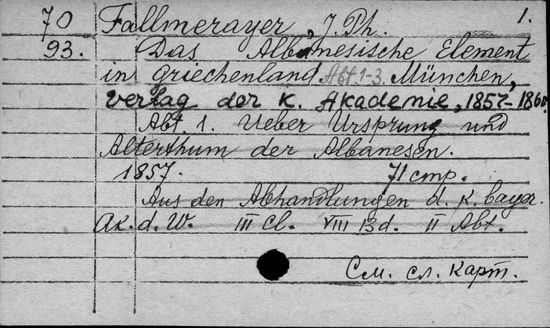 70 Fallmerayer, J. Ph. 1.
93. Das Albanesische Element
in Griechenland. Abt 1-3 München,
Verlag der K. Akademie, 1857-1860.
Abt 1. Ueber Ursprung und
Alterthum der Albanesen.
1857. 71 стр.
Aus den Abhandlungen d. K. bayer.
Ak. d. W. III Cl. VIII Bd. II Abt.
См. сл. карт.